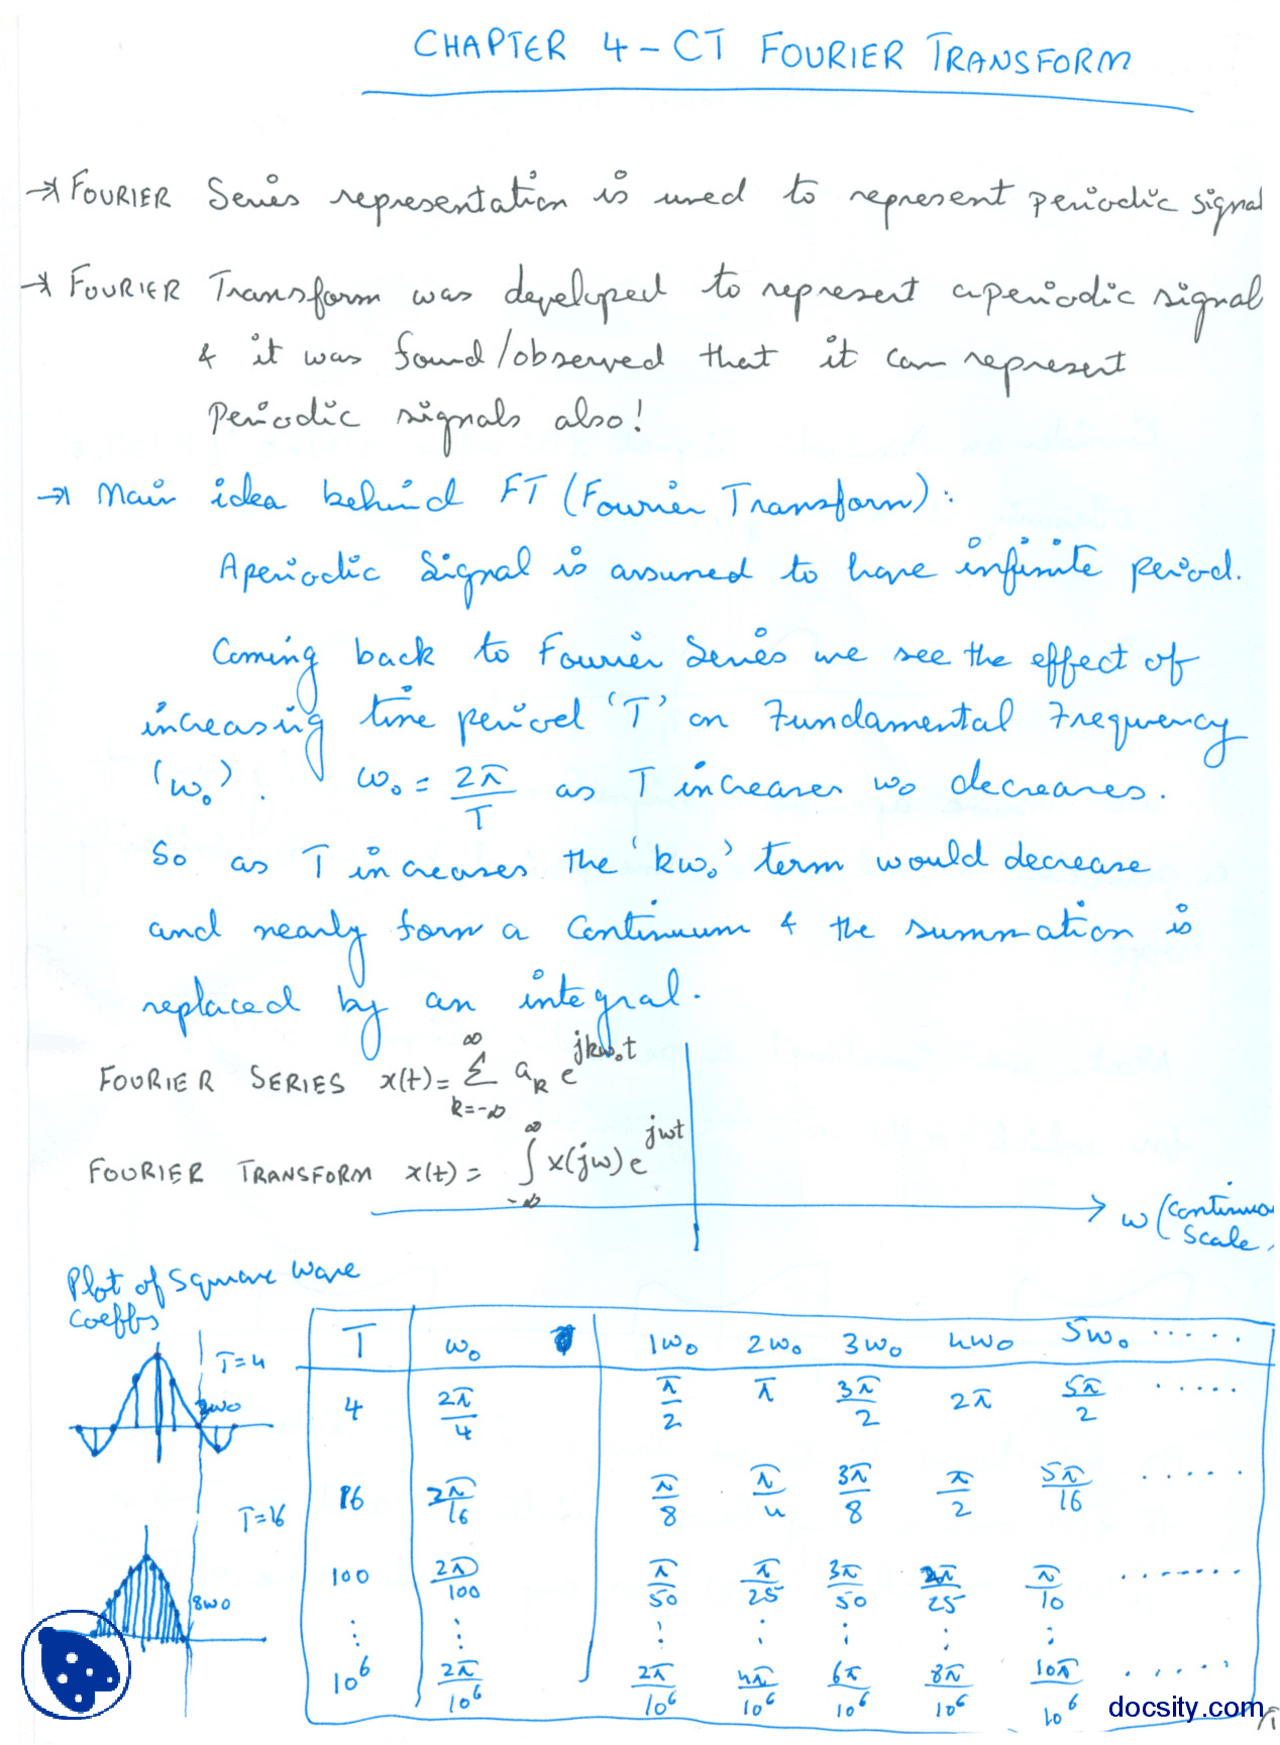 CHAPTER 4 - CT FOURIER TRANSFORM
→ FOURIER Series representation is used to represent periodic signal
→ FOURIER Transform was developed to represent aperiodic signal
& it was found/observed that it can represent
Periodic signals also!
→ Main idea behind FT (Fourier Transform):
Aperiodic Signal is assumed to have infinite period.
Coming back to Fourier Series we see the effect of
increasing time period 'T' on Fundamental Frequency
(ω₀). ω₀ = 2π/T as T increases ω₀ decreases.
So as T increases the 'kω₀' term would decrease
and nearly form a Continuum & the summation is
replaced by an integral.
FOURIER SERIES x(t) = ∑_{k=-∞}^{∞} a_k e^{jkω₀t}
FOURIER TRANSFORM x(t) = ∫_{-∞}^{∞} x(jω) e^{jωt}
ω (Continuo
Scale,
Plot of Square Wave
Coeffs
T=4
2ω₀
T=16
8ω₀
T ω₀ 1ω₀ 2ω₀ 3ω₀ 4ω₀ 5ω₀ .....
4 2π/4 π/2 π 3π/2 2π 5π/2 .....
16 2π/16 π/8 π/4 3π/8 π/2 5π/16 .....
100 2π/100 π/50 π/25 3π/50 2π/25 π/10 .......
⋮ ⋮ ⋮ ⋮ ⋮ ⋮ ⋮
10⁶ 2π/10⁶ 2π/10⁶ 4π/10⁶ 6π/10⁶ 8π/10⁶ 10π/10⁶ .....
docsity.com